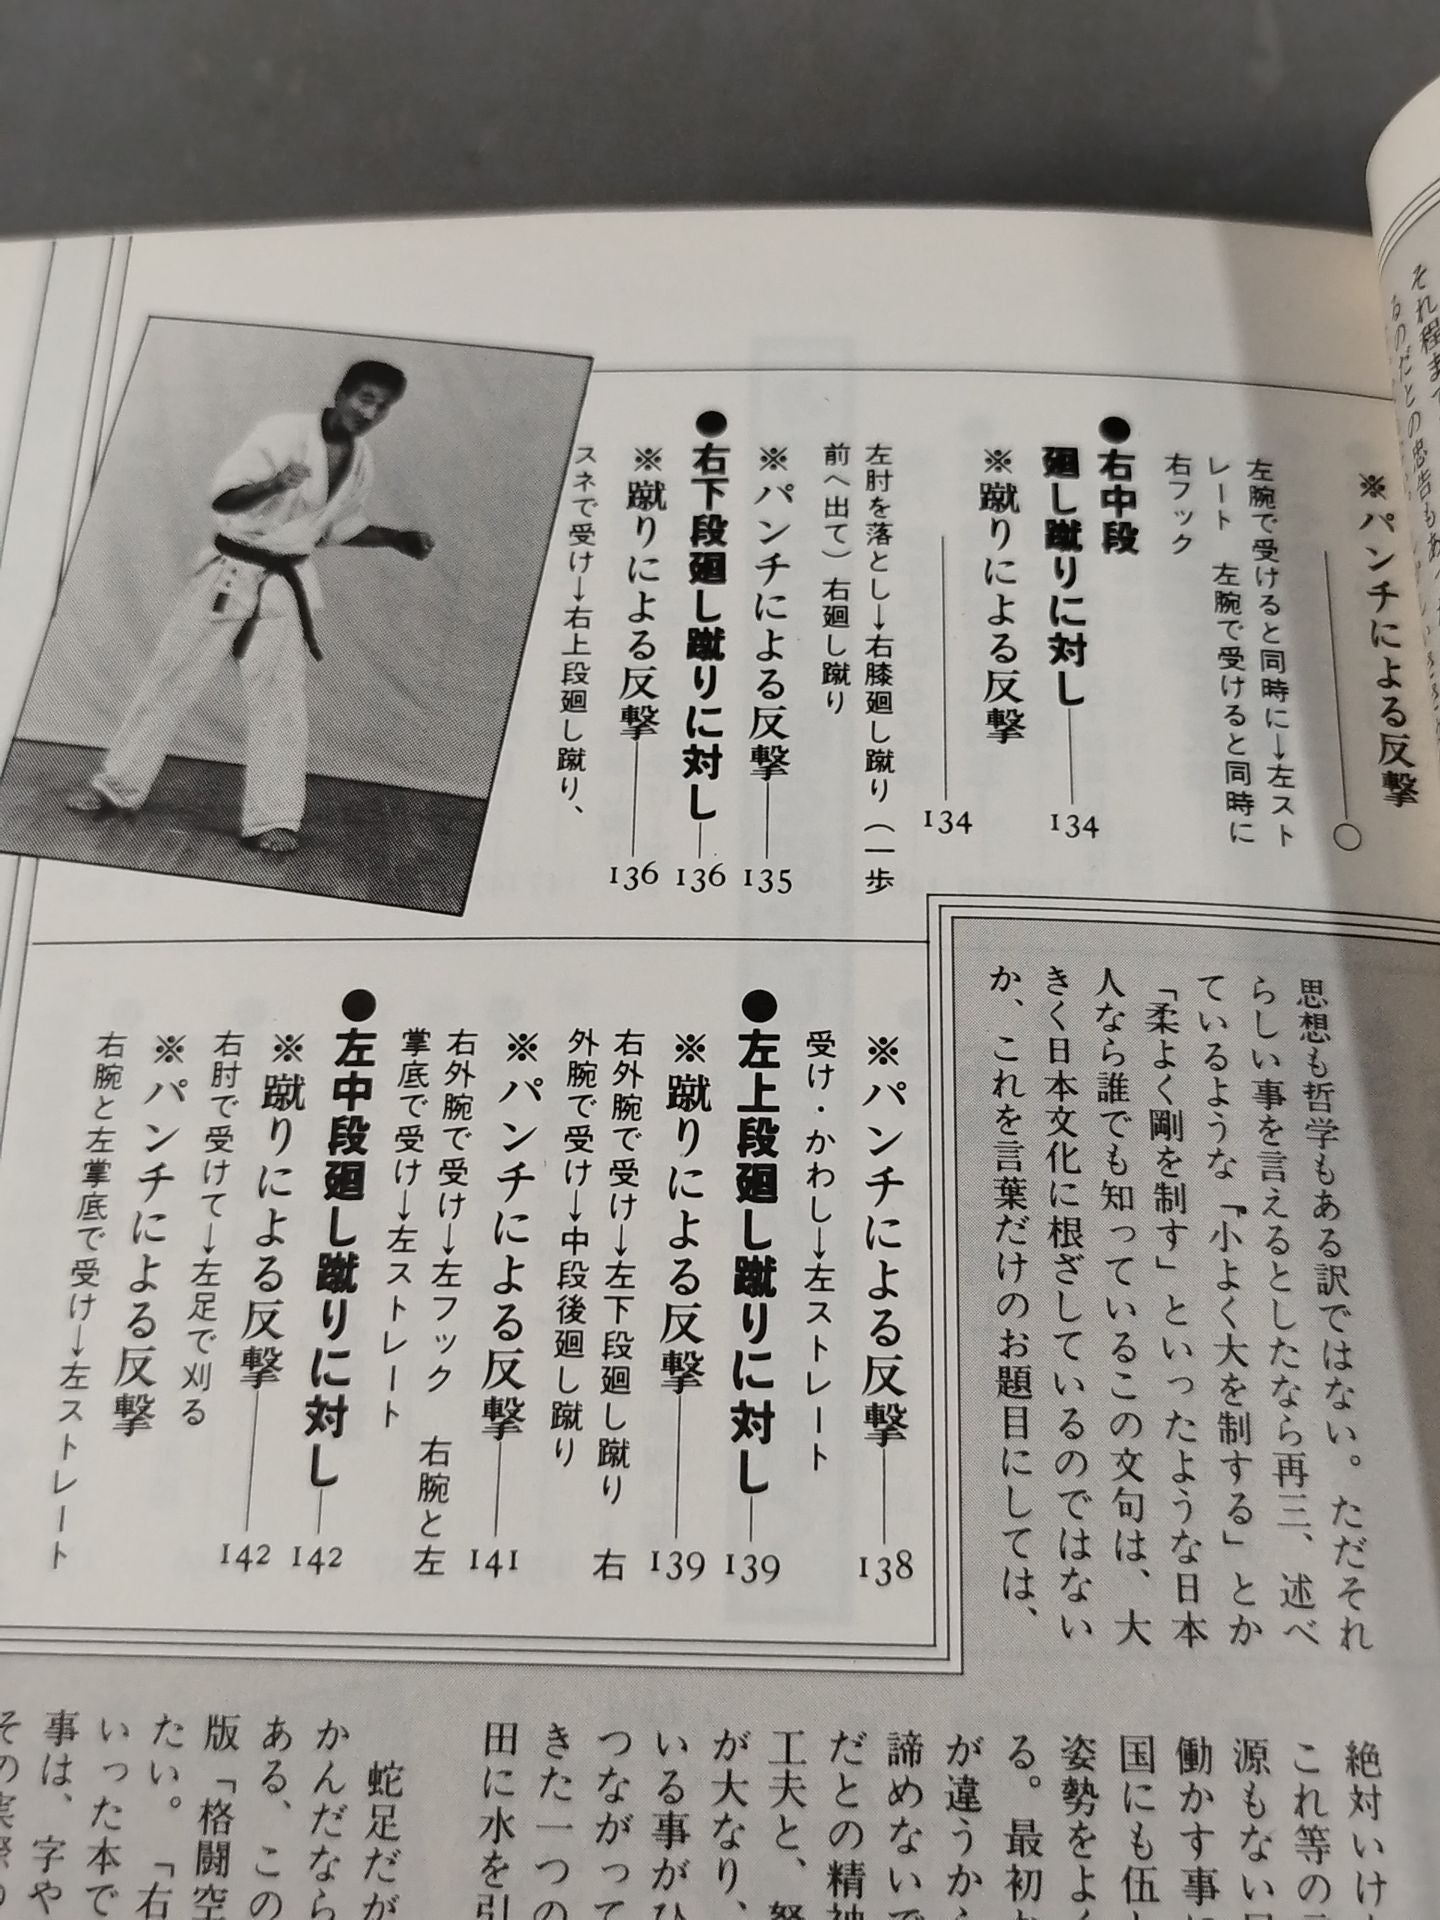 ※パンチによる反撃
左腕で受けると同時に→左スト
レート　左腕で受けると同時に
右フック
●右中段
廻し蹴りに対し 134
※蹴りによる反撃
134
左肘を落とし→右膝廻し蹴り（一歩
前へ出て）右廻し蹴り
※パンチによる反撃 135
●右下段廻し蹴りに対し 136
※蹴りによる反撃 136
スネで受け→右上段廻し蹴り、
※パンチによる反撃 138
受け・かわし→左ストレート
●左上段廻し蹴りに対し 139
※蹴りによる反撃 139
右外腕で受け→左下段廻し蹴り　右
外腕で受け→中段後廻し蹴り
※パンチによる反撃 141
右外腕で受け→左フック　右腕と左
掌底で受け→左ストレート
●左中段廻し蹴りに対し 142
※蹴りによる反撃 142
右肘で受けて→左足で刈る
※パンチによる反撃
右腕と左掌底で受け→左ストレート
思想も哲学もある訳ではない。ただそれ
らしい事を言えるとしたなら再三、述べ
ているような『小よく大を制する」とか
「柔よく剛を制す」といったような日本
人なら誰でも知っているこの文句は、大
きく日本文化に根ざしているのではない
か、これを言葉だけのお題目にしては、
絶対いけ
これ等の
源もない
働かす事に
国にも伍
姿勢をよく
る。最初
が違うから
諦めないで
だとの精神
工夫と、努
が大なり、
いる事がひ
つながって
きた一つの
田に水を引
蛇足だが
かんだなら
ある、この
版「格闘空
たい。「右
いった本で
事は、字や